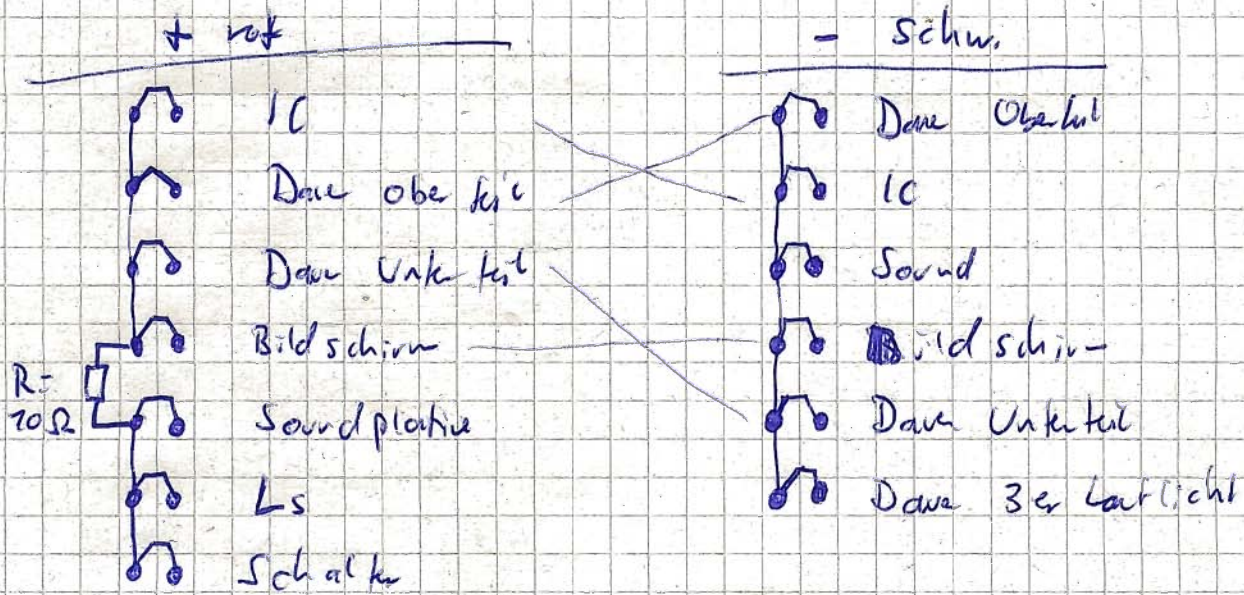 + rot
IC
Dave Oberteil
Dave Unterteil
Bildschirm
R=
10Ω
Soundplatine
Ls
Schalter
- Schw.
Dave Oberteil
IC
Sound
Bildschirm
Dave Unterteil
Dave 3er Lauflicht